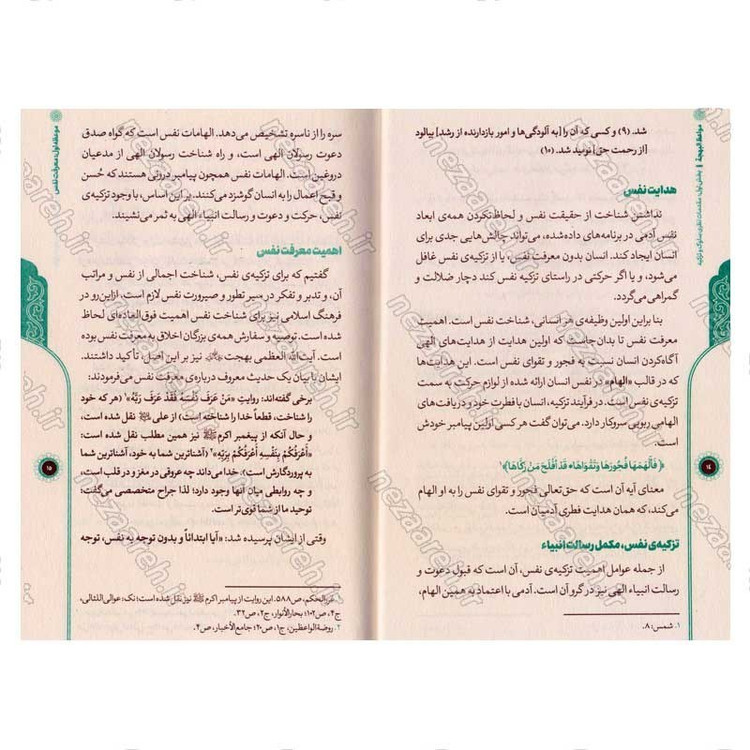 مواعظ البهجة | بخش اول: مقدمات نظری سلوک و تزکیه
شد. (۹) و کسی که آن را [به آلودگی‌ها و امور بازدارنده از رشد] بیالود
[از رحمت حق] نومید شد. (۱۰)
هدایت نفس
نداشتن شناخت از حقیقت نفس و لحاظ‌نکردن همه‌ی ابعاد
نفس آدمی در برنامه‌های داده‌شده، می‌تواند چالش‌هایی جدی برای
انسان ایجاد کند. انسان بدون معرفت نفس، یا از تزکیه‌ی نفس غافل
می‌شود، و یا اگر حرکتی در راستای تزکیه نفس کند دچار ضلالت و
گمراهی می‌گردد.
بنا براین اولین وظیفه‌ی هر انسانی، شناخت نفس است. اهمیت
معرفت نفس تا بدان‌جاست که اولین هدایت از هدایت‌های الهی
آگاه‌کردن انسان نسبت به فجور و تقوای نفس است. این هدایت‌ها
که در قالب «الهام» در نفس انسان ارائه شده از لوازم حرکت به سمت
تزکیه‌ی نفس است. در فرآیند تزکیه، انسان با فطرت خود و دریافت‌های
الهامی ربوبی سروکار دارد. می‌توان گفت هر کسی اولین پیامبر خودش
است.
﴿فَأَلْهَمَهَا فُجُورَهَا وَتَقْوَاهَا * قَدْ أَفْلَحَ مَنْ زَكَّاهَا﴾۱
معنای آیه آن است که حق‌تعالی فجور و تقوای نفس را به او الهام
می‌کند، که همان هدایت فطری آدمیان است.
تزکیه‌ی نفس، مکمل رسالت انبیاء
از جمله عوامل اهمیت تزکیه‌ی نفس، آن است که قبول دعوت و
رسالت انبیاء الهی نیز در گرو آن است. آدمی با اعتماد به همین الهام،
۱. شمس: ۸.
۱۴
موعظه اول: معرفت نفس
سره را از ناسره تشخیص می‌دهد. الهامات نفس است که گواه صدق
دعوت رسولان الهی است، و راه شناخت رسولان الهی از مدعیان
دروغین است. الهامات نفس همچون پیامبر درونی هستند که حُسن
و قبح اعمال را به انسان گوشزد می‌کنند. بر این اساس، با وجود تزکیه‌ی
نفس، حرکت و دعوت و رسالت انبیاء الهی به ثمر می‌نشیند.
اهمیت معرفت نفس
گفتیم که برای تزکیه‌ی نفس، شناخت اجمالی از نفس و مراتب
آن، و تدبر و تفکر در سیر تطور و صیرورت نفس لازم است. ازاین‌رو در
فرهنگ اسلامی نیز برای شناخت نفس اهمیت فوق‌العاده‌ای لحاظ
شده است. توصیه و سفارش همه‌ی بزرگان اخلاق به معرفت نفس بوده
است. آیت‌الله العظمی بهجت نیز بر این اصل، تأکید داشتند.
ایشان با بیان یک حدیث معروف درباره‌ی معرفت نفس می‌فرمودند:
برخی گفته‌اند: روایتِ «مَنْ عَرَفَ نَفْسَهُ فَقَدْ عَرَفَ رَبَّهُ»۱ (هر که خود
را شناخت، قطعاً خدا را شناخته است) از علی نقل شده است،
و حال آنکه از پیغمبر اکرم ﷺ نیز همین مطلب نقل شده است:
«أَعْرَفُكُمْ بِنَفْسِهِ أَعْرَفُكُمْ بِرَبِّهِ»۲ (آشناترین شما به خود، آشناترین شما
به پروردگارش است). خدا می‌داند چه عروقی در مغز و در قلب است،
و چه روابطی میان آنها وجود دارد؛ لذا جراح متخصصی می‌گفت:
توحید ما از شما قوی‌تر است.
وقتی از ایشان پرسیده شد: «آیا ابتدائاً و بدون توجه به نفس، توجه
۱. غررالحکم، ص۵۸۸. این روایت از پیامبر اکرم ﷺ نیز نقل شده است؛ نک: عوالی اللئالی،
ج۴، ص۱۰۲؛ بحارالأنوار، ج۲، ص۳۲.
۲. روضة الواعظین، ج۱، ص۲۰؛ جامع الأخبار، ص۴.
۱۵
nezaareh.ir